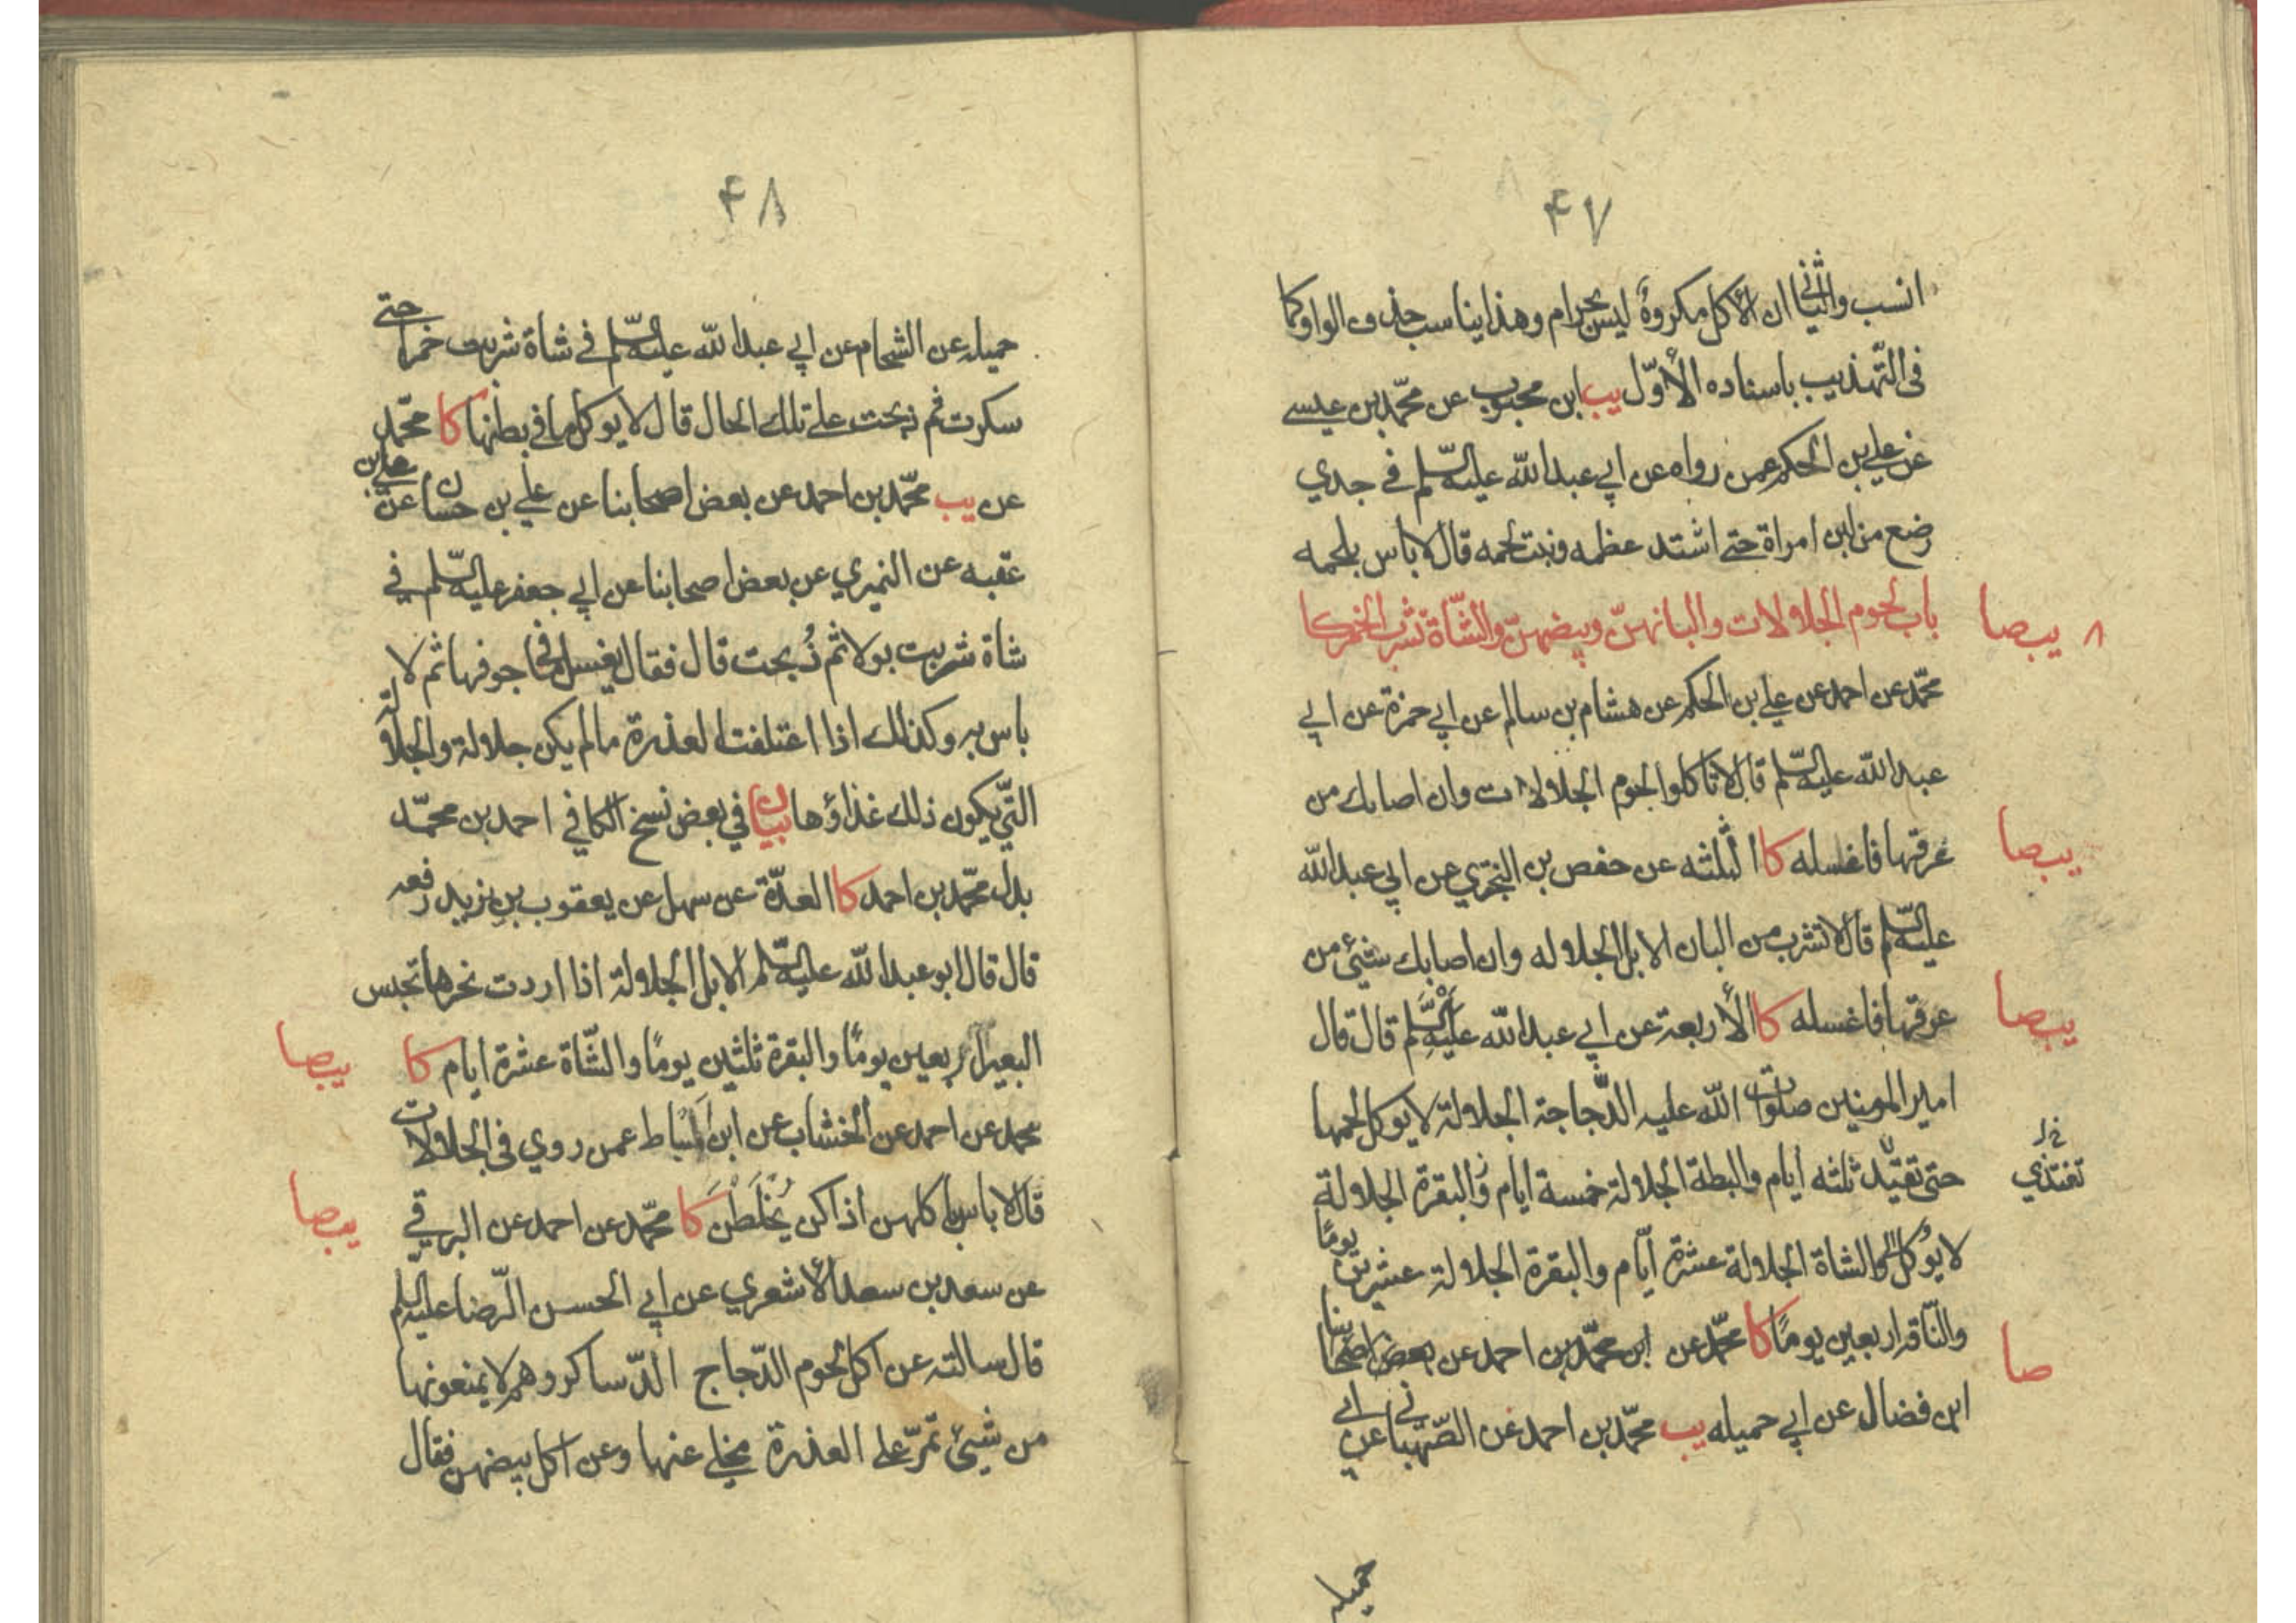 ۴۷
انسب والثاني ان الأكل مكروه ليس بحرام وهذا يناسب حذف الواو كما
في التّهذيب باسناده الأوّل يب ابن محبوب عن محمّد بن عيسى
عن علي بن الحكم عمن رواه عن ابي عبد الله عليه السّلم في جدي
رضع من لبن امراة حتى اشتد عظمه ونبت لحمه قال لا باس بلحمه
باب لحوم الجلالات والبانهنّ وبيضهنّ والشّاة تشرب الخمر كا
٨ يب صا
محمّد عن احمد عن علي بن الحكم عن هشام بن سالم عن ابي حمزة عن ابي
عبد الله عليه السّلم قال لا تاكلوا لحوم الجلالات وان اصابك من
عرقها فاغسله كا الثلثه عن حفص بن البختري عن ابي عبد الله
يب صا
عليه السّلم قال لا تشرب من البان الابل الجلاله وان اصابك شيئ من
عرقها فاغسله كا الأربعة عن ابي عبد الله عليه السّلم قال قال
يب صا
امير المومنين صلوات الله عليه الدّجاجة الجلالة لا يوكل لحمها
حتى تقيّد ثلثه أيام والبطة الجلالة خمسة ايام والبقرة الجلالة
خ ل
تغتذي
لا يؤكل والشاة الجلالة عشرة أيّام والبقرة الجلالة عشرين يومًا
والنّاقه اربعين يومًا كا محمّد عن ابن محمّد بن احمد عن بعض اصحابنا
صا
ابن فضال عن ابي حميله يب محمّد بن احمد عن الصّهباني عن ابي
حميله
۴۸
حميله عن الشحام عن ابي عبد الله عليه السّلم في شاة شربت خمرا حتى
سكرت ثم ذبحت على تلك الحال قال لا يوكل ما في بطنها كا محمّد
عن يب محمّد بن احمد عن بعض اصحابنا عن علي بن حسان عن علي بن
عقبه عن النميري عن بعض اصحابنا عن ابي جعفر عليه السّلم في
شاة شربت بولا ثم ذُبحت قال فقال يغسل ما في جوفها ثم لا
باس به وكذلك اذا اعتلفت العذرة ما لم يكن جلالة والجلالة
التّي يكون ذلك غذاؤها بيان في بعض نسخ الكافي احمد بن محمّد
بدل محمّد بن احمد كا العدّة عن سهل عن يعقوب بن يزيد رفعه
قال قال ابو عبد الله عليه السّلم الابل الجلالة اذا اردت نحرها تحبس
البعير اربعين يومًا والبقرة ثلثين يومًا والشّاة عشرة ايام كا
يب صا
محمد عن احمد عن الخشاب عن ابن اسباط عمن روي في الجلالات
قال لا باس باكلهن اذا كن يُخْلَطن كا محمّد عن احمد عن البرقي
يب صا
عن سعد بن سعد الأشعري عن ابي الحسن الرّضا عليه السّلم
قال سالته عن اكل لحوم الدّجاج الدّساكر وهم لا يمنعونها
من شيئ تمرّ على العذرة مخلي عنها وعن اكل بيضهن فقال